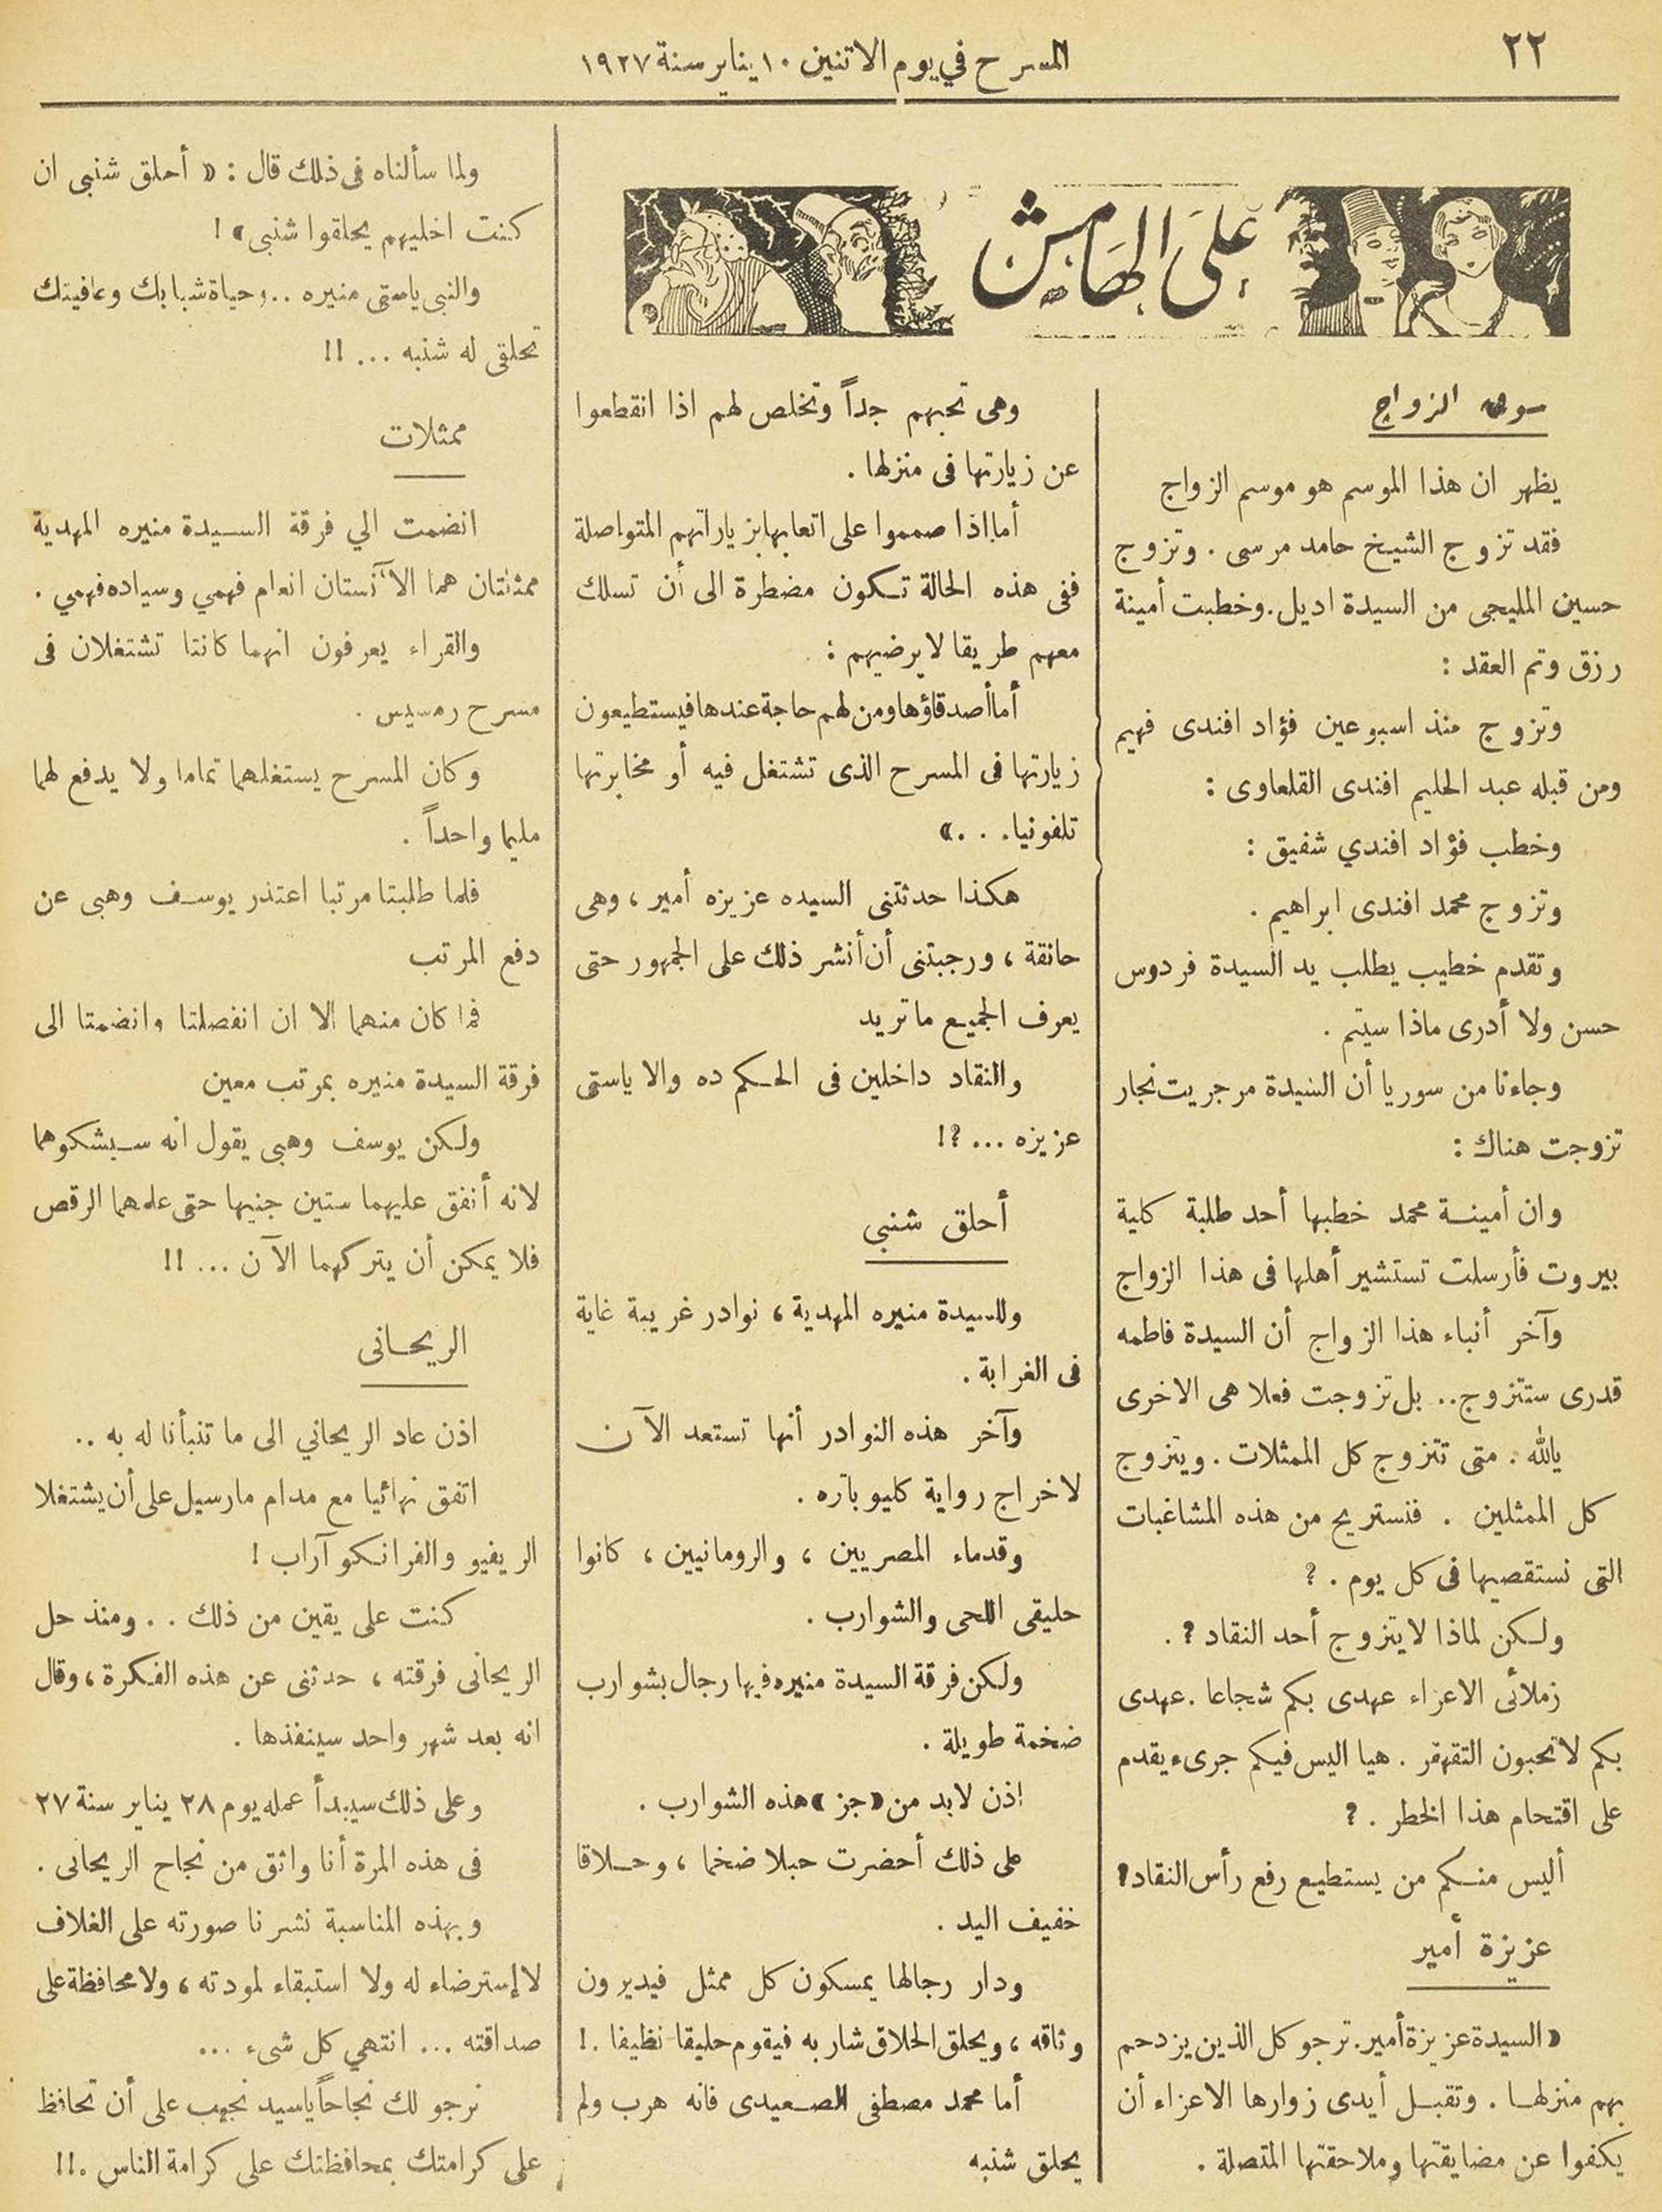 ٢٢
المسرح في يوم الاثنين ١٠ يناير سنة ١٩٢٧
على الهامش
سوق الزواج
يظهر ان هذا الموسم هو موسم الزواج
فقد تزوج الشيخ حامد مرسى . وتزوج
حسين المليجى من السيدة اديل . وخطبت أمينة
رزق وتم العقد :
وتزوج منذ اسبوعين فؤاد افندى فهيم
ومن قبله عبد الحليم افندى القلعاوى :
وخطب فؤاد افندي شفيق :
وتزوج محمد افندى ابراهيم .
وتقدم خطيب يطلب يد السيدة فردوس
حسن ولا أدرى ماذا سيتم .
وجاءنا من سوريا أن السيدة مرجريت نجار
تزوجت هناك :
وان أمينة محمد خطبها أحد طلبة كلية
بيروت فأرسلت تستشير أهلها فى هذا الزواج
وآخر أنباء هذا الزواج أن السيدة فاطمه
قدرى ستتزوج .. بل تزوجت فعلا هى الاخرى
يالله . متى تتزوج كل الممثلات . ويتزوج
كل الممثلين . فنستريح من هذه المشاغبات
التى نستقصيها فى كل يوم . ؟
ولكن لماذا لا يتزوج أحد النقاد ؟ .
زملائى الاعزاء عهدى بكم شجاعا . عهدى
بكم لا تحبون التقهقر . هيا اليس فيكم جرىء يقدم
على اقتحام هذا الخطر . ؟
أليس منكم من يستطيع رفع رأس النقاد ؟
عزيزة أمير
« السيدة عزيزة أمير . ترجو كل الذين يزدحم
بهم منزلها . وتقبل أيدى زوارها الاعزاء أن
يكفوا عن مضايقتها وملاحقتها المتصلة .
وهى تحبهم جداً وتخلص لهم اذا انقطعوا
عن زيارتها فى منزلها .
أما اذا صمموا على اتعابها بزياراتهم المتواصلة
ففى هذه الحالة تكون مضطرة الى أن تسلك
معهم طريقا لا يرضيهم :
أما أصدقاؤها ومن لهم حاجة عندها فيستطيعون
زيارتها فى المسرح الذى تشتغل فيه أو مخابرتها
تلفونيا . . . »
هكذا حدثتنى السيده عزيزه أمير ، وهى
حانقة ، ورجبتنى أن أنشر ذلك على الجمهور حتى
يعرف الجميع ما تريد
والنقاد داخلين فى الحكم ده والا ياستى
عزيزه ... ؟!
أحلق شنبي
وللسيدة منيره المهدية ، نوادر غريبة غاية
فى الغرابة .
وآخر هذه النوادر أنها تستعد الآن
لاخراج رواية كليوباتره .
وقدماء المصريين ، والرومانيين ، كانوا
حليقى اللحى والشوارب .
ولكن فرقة السيدة منيره فيها رجال بشوارب
ضخمة طويلة .
اذن لا بد من « جز » هذه الشوارب .
على ذلك أحضرت حبلا ضخما ، وحلاقا
خفيف اليد .
ودار رجالها يمسكون كل ممثل فيديرون
وثاقه ، ويحلق الحلاق شاربه فيقوم حليقا نظيفا . !
أما محمد مصطفى الصعيدى فانه هرب ولم
يحلق شنبه
ولما سألناه فى ذلك قال : « أحلق شنبى ان
كنت اخليهم يحلقوا شنبى » !
والنبى ياستى منيره .. وحياة شبابك وعافيتك
تحلقى له شنبه ... !!
ممثلات
انضمت الي فرقة السيدة منيره المهدية
ممثلتان هما الآنستان انعام فهمي وسياده فهمي .
والقراء يعرفون انهما كانتا تشتغلان فى
مسرح رمسيس .
وكان المسرح يستغلهما تماما ولا يدفع لهما
مليما واحداً .
فلما طلبتا مرتبا اعتذر يوسف وهبى عن
دفع المرتب
فما كان منهما الا ان انفصلتا وانضمتا الى
فرقة السيدة منيره بمرتب معين
ولكن يوسف وهبى يقول انه سيشكوهما
لانه أنفق عليهما ستين جنيها حتى علمهما الرقص
فلا يمكن أن يتركهما الآن ... !!
الريحانى
اذن عاد الريحاني الى ما تنبأنا له به ..
اتفق نهائيا مع مدام مارسيل على أن يشتغلا
الريفيو والفرانكو آراب !
كنت على يقين من ذلك .. ومنذ حل
الريحانى فرقته ، حدثنى عن هذه الفكرة ، وقال
انه بعد شهر واحد سينفذها .
وعلى ذلك سيبدأ عمله يوم ٢٨ يناير سنة ٢٧
فى هذه المرة أنا واثق من نجاح الريحانى .
وبهذه المناسبة نشرنا صورته على الغلاف
لا إسترضاء له ولا استبقاء لمودته ، ولا محافظة على
صداقته ... انتهي كل شىء ...
نرجو لك نجاحاً ياسيد نجيب على أن تحافظ
على كرامتك بمحافظتك على كرامة الناس . !!